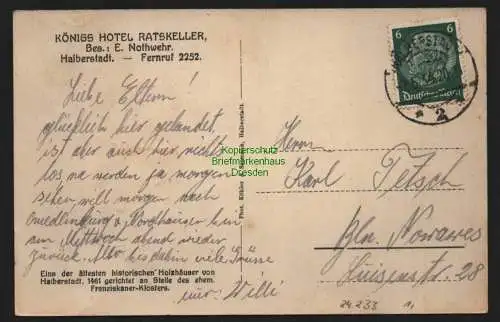 KÖNIGS HOTEL RATSKELLER,
Bes.: E. Nothwehr.
Halberstadt. — Fernruf 2252.
Liebe Eltern!
glücklich hier gelandet,
ist aber auch hier nichts
los, na werden ja morgen
sehen, will morgen nach
Quedlinburg u. Nordhausen bin
am Mittwoch abend wieder
zurück. Also bis dahin viele Grüsse
euer Willi
Eine der ältesten historischen Holzhäuser von
Halberstadt. 1461 gerichtet an Stelle des ehem.
Franziskaner-Klosters.
Halberstadt.
6
6
Deutsches Reich
2
Herrn
Karl Tetsch
Bln. Nowawes
Luisenstr. 28
24233
Kopierschutz
Briefmarkenhaus
Dresden